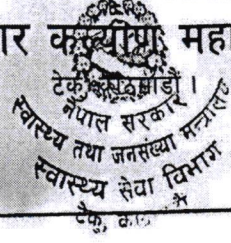 कल्याण
टेकु, काठमाडौं ।
नेपाल सरकार
स्वास्थ्य तथा जनसंख्या मन्त्रालय
स्वास्थ्य सेवा विभाग
टेकु,